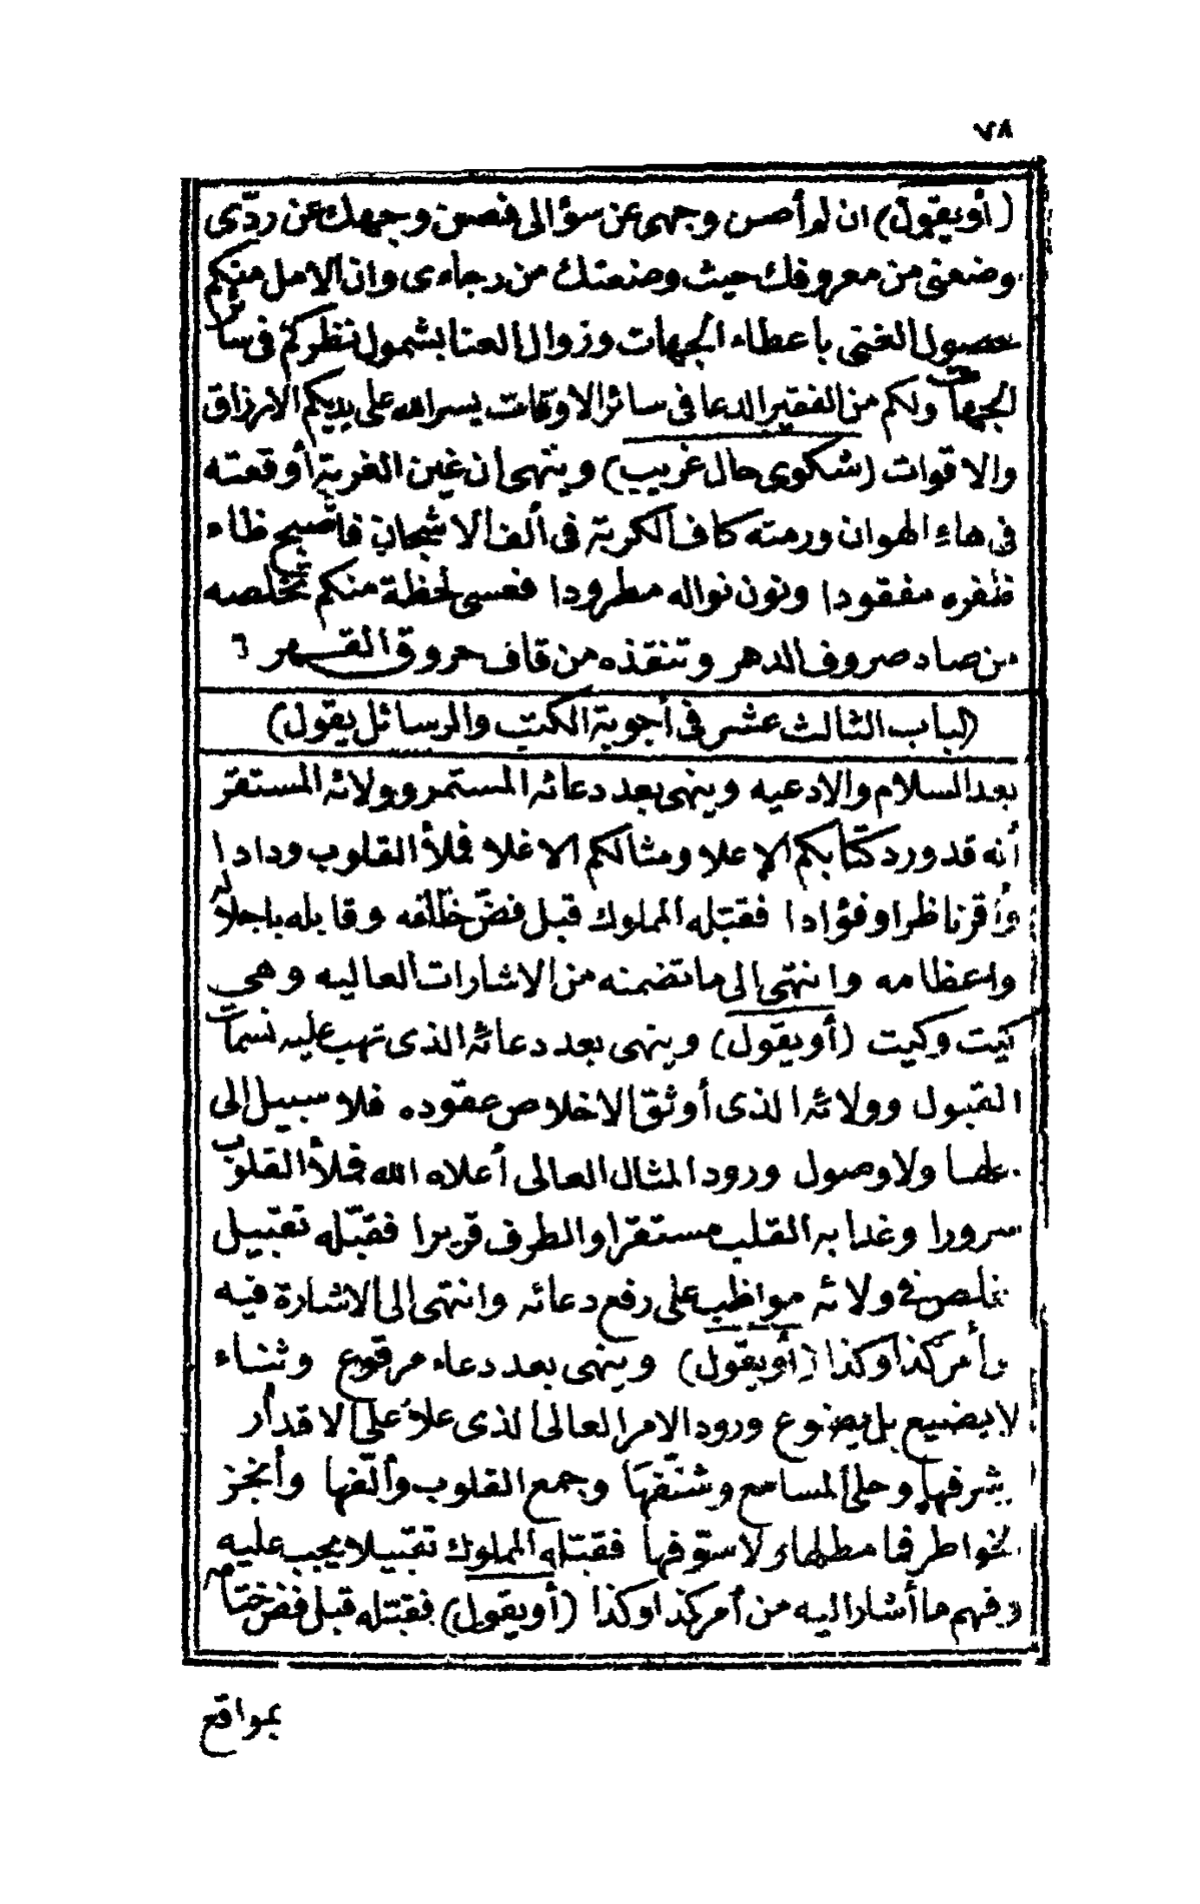 ٧٨
(أو يقول) ان لم أصن وجهى عن سؤالى فصن وجهك عن ردّى
وضعنى من معروفك حيث وضعتك من رجاءى وان الامل منكم
حصول الغنى باعطاء الجهات وزوال العنا بشمول نظركم فى سائر
الجهات ولكم من الفقير الدعا فى سائر الاوقات يسر الله على يديكم الارزاق
والاقوات (شكوى حال غريب) وينهى ان غين الغربة أوقعته
فى هاء الهوان ورمته كاف الكربة فى ألف الاشجان فاصبح ظاء
ظفره مفقودا ونون نواله مطرودا فعسى لحظة منكم تخلصه
من صاد صروف الدهر وتنقذه من قاف حروق القهر ٦
(الباب الثالث عشر فى أجوبة الكتب والرسائل يقول)
بعد السلام والادعيه وينهى بعد دعائه المستمر وولائه المستقر
أنه قد ورد كتابكم الاعلا ومثالكم الاغلا فملأ القلوب ودادا
وأقر ناظرا وفؤادا فقبّله المملوك قبل فضّ ختامه وقابله باجلاله
واعظامه وانتهى الى ما تضمنه من الاشارات العاليه وهى
كيت وكيت (أو يقول) وينهى بعد دعائه الذى تهب عليه نسمات
القبول وولائه الذى أوثق الاخلاص عقوده فلا سبيل الى
حلها ولا وصول ورود المثال العالى أعلاه الله فملأ القلوب
سرورا وغدا به القلب مستقرا والطرف قريرا فقبّله تقبيل
مخلص فى ولائه مواظب على رفع دعائه وانتهى الى الاشارة فيه
من أمر كذا وكذا (أو يقول) وينهى بعد دعاء مرفوع وثناء
لا يضيع بل يضوع ورود الامر العالى الذى علا على الاقدار
بشرفها وحلى المسامع وشنّفها وجمع القلوب وألّفها وأنجز
الخواطر فما مطلها ولا سوّفها فقبّله المملوك تقبيلا يجب عليه
وفهم ما أشار اليه من أمر كذا وكذا (أو يقول) فقبّله قبل فض ختامه
بمواقع